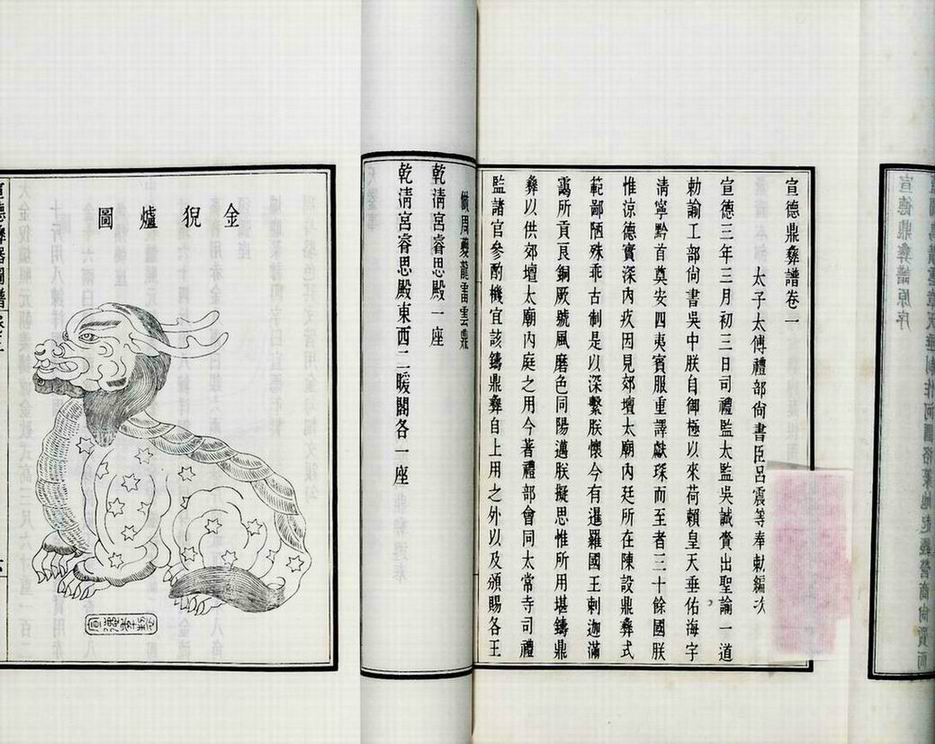 宣德鼎彝譜卷一
太子太傅禮部尚書臣呂震等奉勅編次
宣德三年三月初三日司禮監太監吳誠賫出聖諭一道
勅諭工部尚書吳中朕自御極以來荷賴皇天垂佑海宇
清寧黔首奠安四夷賓服重譯獻琛而至者三十餘國朕
惟涼德實深內疚因見郊壇太廟內廷所在陳設鼎彝式
範鄙陋殊乖古制是以深繫朕懷今有暹羅國王剌迦滿
靄所貢良銅厥號風磨色同陽邁朕擬思惟所用堪鑄鼎
彝以供郊壇太廟內庭之用今著禮部會同太常寺司禮
監諸官參酌機宜該鑄鼎彝自上用之外以及頒賜各王
倣周夔龍雷雲鼎
乾清宮睿思殿一座
乾清宮睿思殿東西二暖閣各一座
金猊爐圖